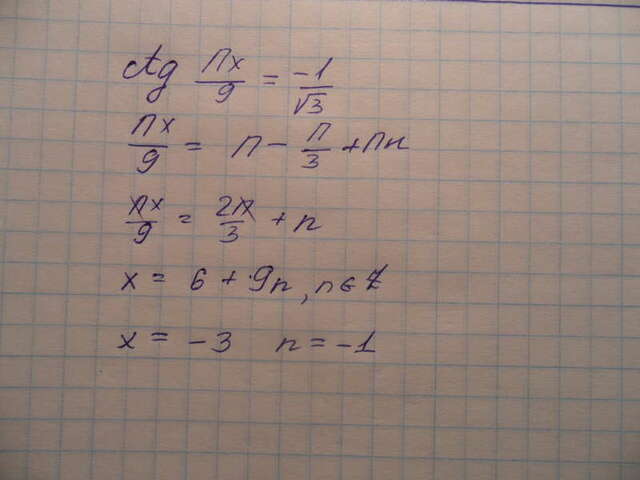 ctg πx/9 = -1/√3
πx/9 = π - π/3 + πn
πx/9 = 2π/3 + n
x = 6 + 9n, n ∈ Z
x = -3 n = -1